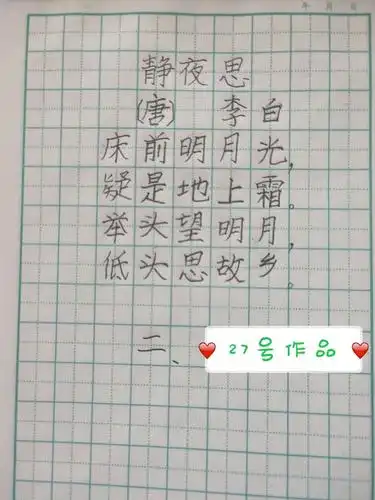 年 月 日
静夜思
(唐) 李白
床前明月光,
疑是地上霜。
举头望明月,
低头思故乡。
二、
27号作品